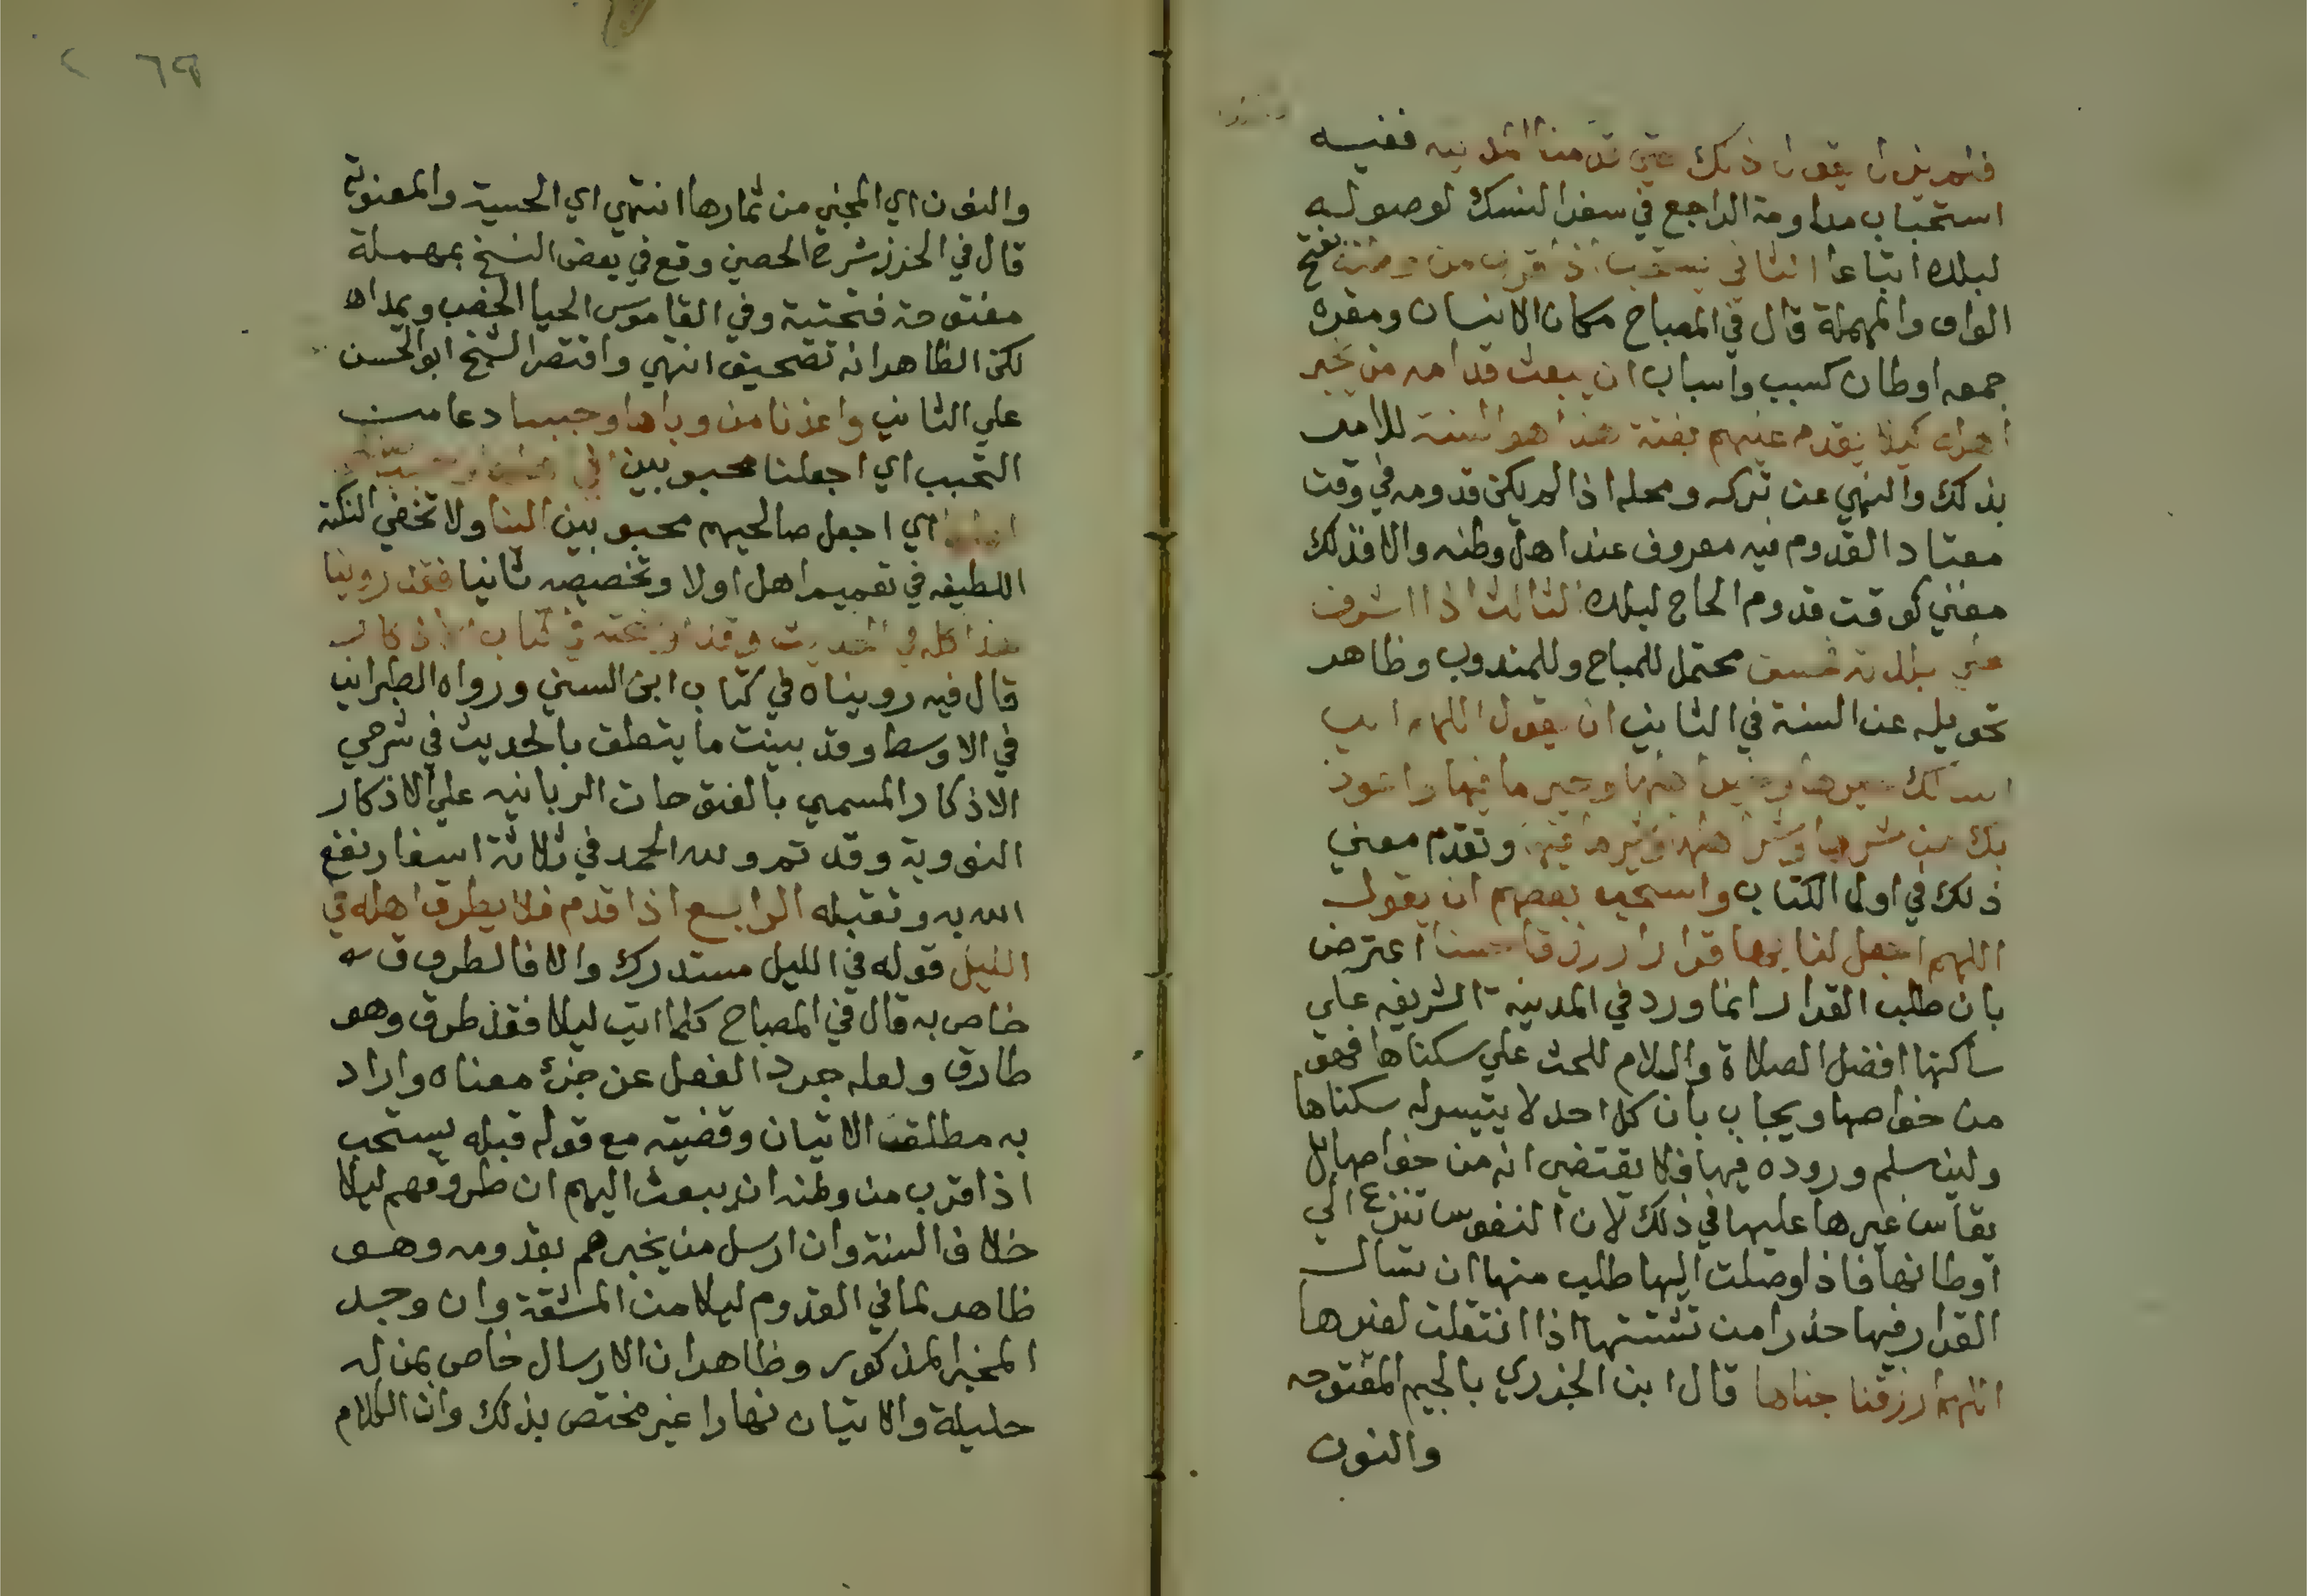 فلم يزل يقول ذلك حتى قدمنا المدينه ففيه
استحباب مداومة الراجع في سفر النسك لوصوله
لبلده اتباعا الثاني يستحب اذا قرب من وطنه بفتح
الواو والمهملة قال في المصباح مكان الانسان ومقره
جمعه اوطان كسبب واسباب ان يبعث قدامه من يخبر
اهله كيلا يقدم عليهم بغتة هذا هو السنة للامر
بذلك والنهي عن تركه ومحله اذا لم يكن قدومه في وقت
معتاد القدوم فيه معروف عند اهل وطنه والا فذلك
مغني كوقت قدوم الحاج لبلده الثالث اذا اشرف
علي بلدته فحسن محتمل للمباح وللمندوب وظاهر
تحويله عن السنة في الثاني ان يقول اللهم اني
اسالك خيرها وخير اهلها وخير ما فيها واعوذ
بك من شرها وشر اهلها وشر ما فيها وتقدم معني
ذلك في اول الكتاب واستحب بعضهم ان يقول
اللهم اجعل لنا بها قرارا ورزقا حسنا اعترض
بان طلب القرار انما ورد في المدينة الشريفه علي
ساكنها افضل الصلاة والسلام للحث علي سكناها فهو
من خواصها ويجاب بان كل احد لا يتيسر له سكناها
ولين سلم وروده فيها فلا يقتضي انه من خواصها بل
يقاس غيرها عليها في ذلك لان النفوس تنزع الي
اوطانها فاذا وصلت اليها طلب منها ان تسال
القرار فيها حذرا من تشتتها اذا انتقلت لغيرها
اللهم ارزقنا جناها قال ابن الجزري بالجيم المفتوحه
والنون
٦٩
والنون اي المجني من ثمارها انتهي اي الحسية والمعنوية
قال في الحرز شرح الحصين وقع في بعض النسخ بمهملة
مفتوحة فتحتية وفي القاموس الحيا الخصب ويمد اه
لكن الظاهر انه تصحيف انتهي واقتصر الشيخ ابو الحسن
علي الثاني واعذنا من وباها وحببنا دعا من
التحبب اي اجعلنا محبوبين الي اهلها وحبب صالحي
اهلها اي اجعل صالحيهم محبوبين الينا ولا تخفي النكتة
اللطيفه في تعميم اهل اولا وتخصيصه ثانيا فقد روينا
هذا كله في الحديث وقد اوضحته في كتاب الاذكار
قال فيه رويناه في كتاب ابن السني ورواه الطبراني
في الاوسط وقد بينت ما يتعلق بالحديث في شرحي
الاذكار المسمي بالفتوحات الربانيه علي الاذكار
النووية وقد تم ولله الحمد في ثلاثة اسفار نفع
الله به وتقبله الرابع اذا قدم فلا يطرق اهله في
الليل قوله في الليل مستدرك والا فالطروق
خاص به قال في المصباح كلما اتي ليلا فقد طرق وهو
طارق ولعله جرد الفعل عن جزء معناه واراد
به مطلق الاتيان وقضيته مع قوله قبله يستحب
اذا قرب من وطنه ان يبعث اليهم ان طروقهم ليلا
خلاف السنة وان ارسل من يخبرهم بقدومه وهو
ظاهر لما في القدوم ليلا من المشقة وان وجد
المخبر المذكور وظاهر ان الارسال خاص بمن له
حليلة والاتيان نهارا غير مختص بذلك وان الكلام